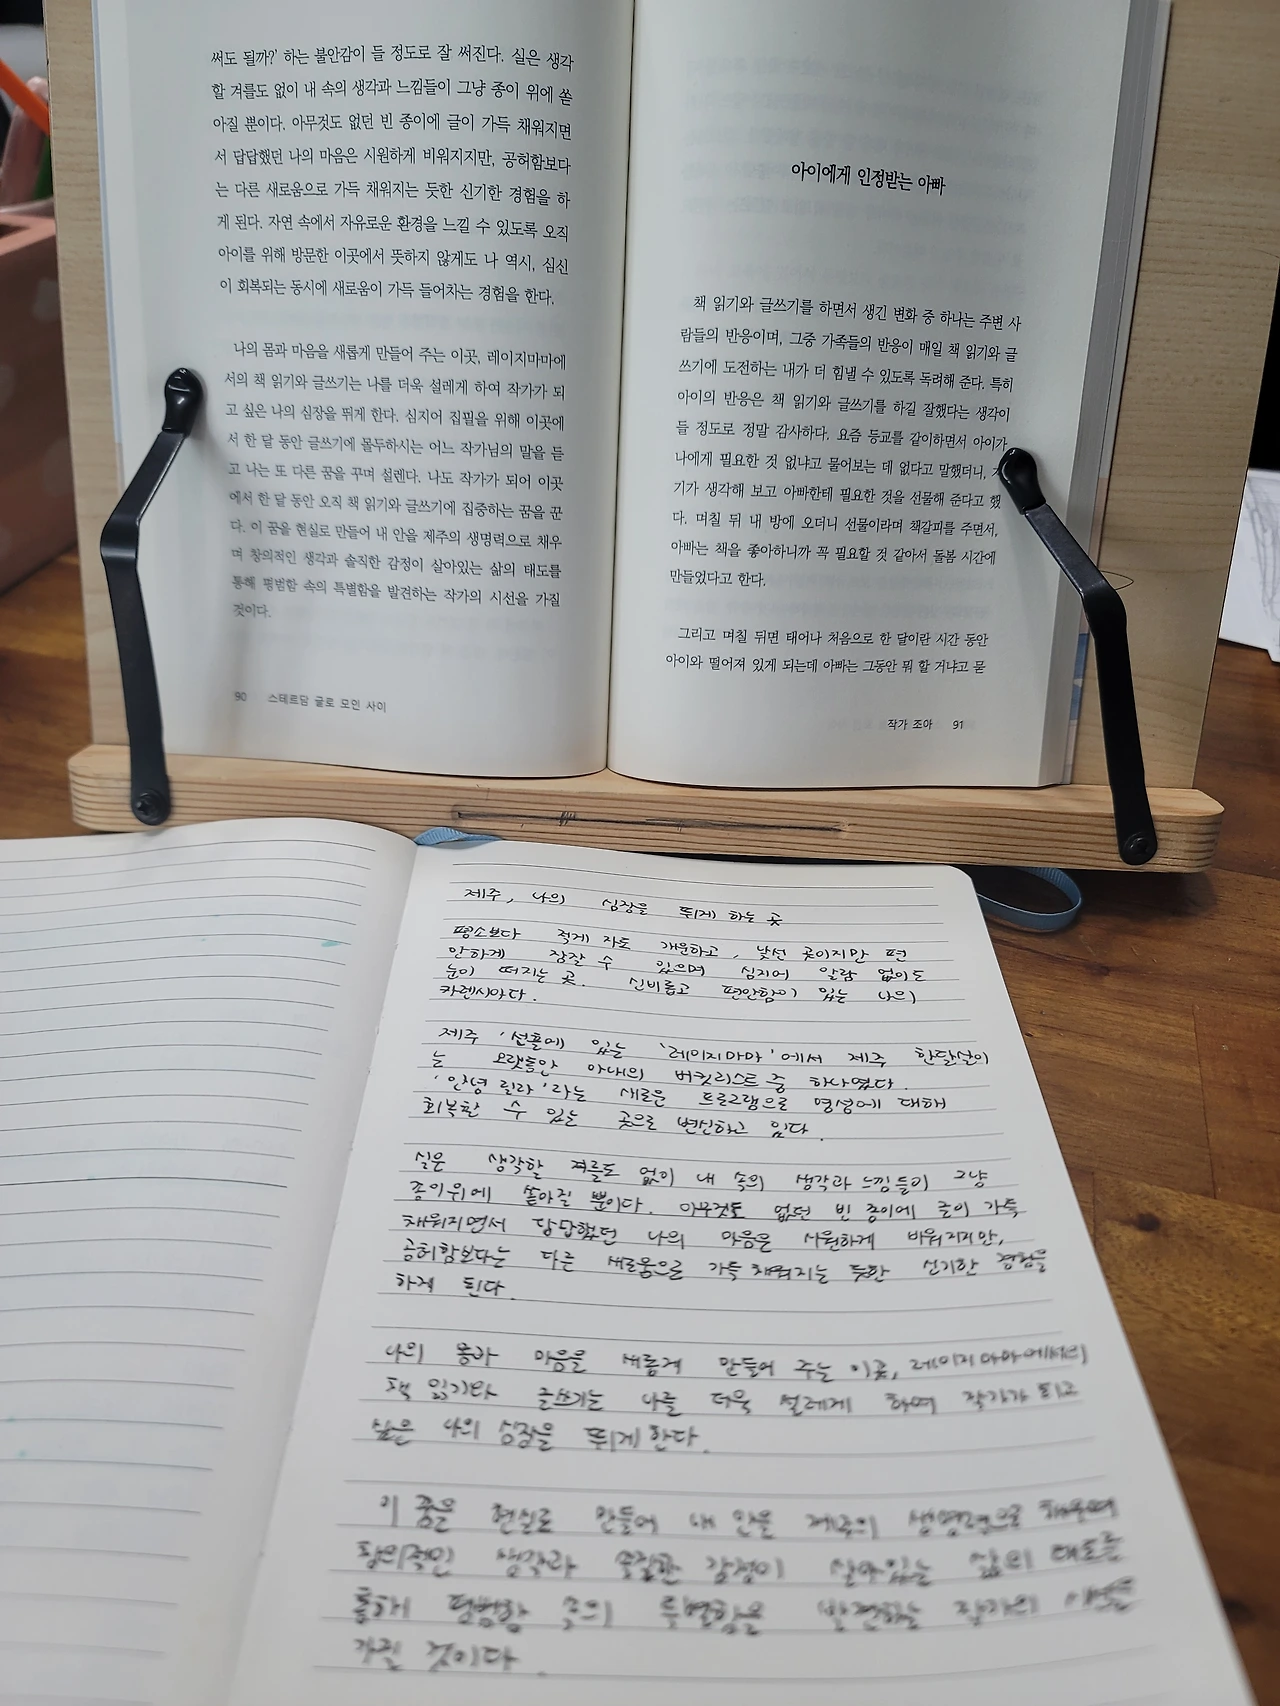 써도 될까?' 하는 불안감이 들 정도로 잘 써진다. 실은 생각
할 겨를도 없이 내 속의 생각과 느낌들이 그냥 종이 위에 쏟
아질 뿐이다. 아무것도 없던 빈 종이에 글이 가득 채워지면
서 답답했던 나의 마음은 시원하게 비워지지만, 공허함보다
는 다른 새로움으로 가득 채워지는 듯한 신기한 경험을 하
게 된다. 자연 속에서 자유로운 환경을 느낄 수 있도록 오직
아이를 위해 방문한 이곳에서 뜻하지 않게도 나 역시, 심신
이 회복되는 동시에 새로움이 가득 들어차는 경험을 한다.
나의 몸과 마음을 새롭게 만들어 주는 이곳, 레이지마마에
서의 책 읽기와 글쓰기는 나를 더욱 설레게 하여 작가가 되
고 싶은 나의 심장을 뛰게 한다. 심지어 집필을 위해 이곳에
서 한 달 동안 글쓰기에 몰두하시는 어느 작가님의 말을 듣
고 나는 또 다른 꿈을 꾸며 설렌다. 나도 작가가 되어 이곳
에서 한 달 동안 오직 책 읽기와 글쓰기에 집중하는 꿈을 꾼
다. 이 꿈을 현실로 만들어 내 안을 제주의 생명력으로 채우
며 창의적인 생각과 솔직한 감정이 살아있는 삶의 태도를
통해 평범함 속의 특별함을 발견하는 작가의 시선을 가질
것이다.
90 스테르담 글로 모인 사이
아이에게 인정받는 아빠
책 읽기와 글쓰기를 하면서 생긴 변화 중 하나는 주변 사
람들의 반응이며, 그중 가족들의 반응이 매일 책 읽기와 글
쓰기에 도전하는 내가 더 힘낼 수 있도록 독려해 준다. 특히
아이의 반응은 책 읽기와 글쓰기를 하길 잘했다는 생각이
들 정도로 정말 감사하다. 요즘 등교를 같이하면서 아이가
나에게 필요한 것 없냐고 물어보는 데 없다고 말했더니,
기가 생각해 보고 아빠한테 필요한 것을 선물해 준다고 했
다. 며칠 뒤 내 방에 오더니 선물이라며 책갈피를 주면서,
아빠는 책을 좋아하니까 꼭 필요할 것 같아서 돌봄 시간에
만들었다고 한다.
그리고 며칠 뒤면 태어나 처음으로 한 달이란 시간 동안
아이와 떨어져 있게 되는데 아빠는 그동안 뭐 할 거냐고 묻
작가 조아 91
제주, 나의 심장을 뛰게 하는 곳
평소보다 적게 자도 개운하고, 낯선 곳이지만 편
안하게 잠잘 수 있으며 심지어 알람 없이도
눈이 떠지는 곳. 신비롭고 편안함이 있는 나의
카렌시아다.
제주 '선흘에 있는 '레이지마마'에서 제주 한달살이
는 오랫동안 아내의 버킷리스트 중 하나였다.
'안녕 릴라'라는 새로운 프로그램으로 명성에 대해
회복할 수 있는 곳으로 변신하고 있다.
실은 생각할 겨를도 없이 내 속의 생각과 느낌들이 그냥
종이위에 쏟아질 뿐이다. 아무것도 없던 빈 종이에 글이 가득
채워지면서 답답했던 나의 마음은 시원하게 비워지지만,
공허함보다는 다른 새로움으로 가득 채워지는 듯한 신기한 경험을
하게 된다.
나의 몸과 마음을 새롭게 만들어 주는 이곳, 레이지마마에서의
책 읽기와 글쓰기는 나를 더욱 설레게 하며 작가가 되고
싶은 나의 심장을 뛰게 한다.
이 꿈을 현실로 만들어 내 안을 제주의 생명력으로 채우며
창의적인 생각과 솔직한 감정이 살아있는 삶의 태도를
통해 평범함 속의 특별함을 발견하는 작가의 시선을
가질 것이다.